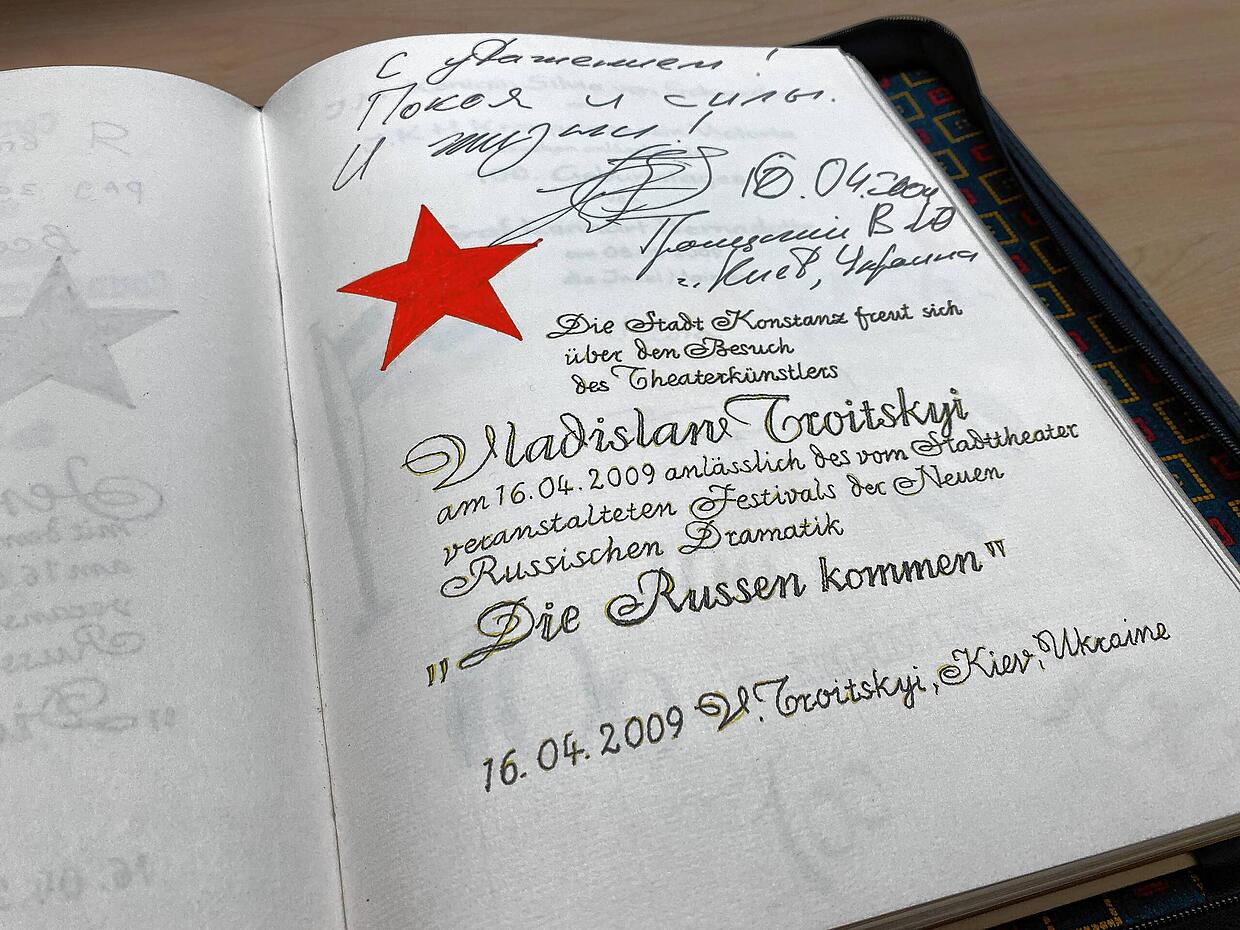 С уважением!
Покоя и силы.
И жизни!
16.04.2009
Троицкий В Ю
г. Киев, Украина
Die Stadt Konstanz freut sich
über den Besuch
des Theaterkünstlers
Vladislaw Troitskyi
am 16.04.2009 anlässlich des vom Stadttheater
veranstalteten Festivals der Neuen
Russischen Dramatik
„Die Russen kommen"
16.04.2009 V. Troitskyi, Kiev, Ukraine